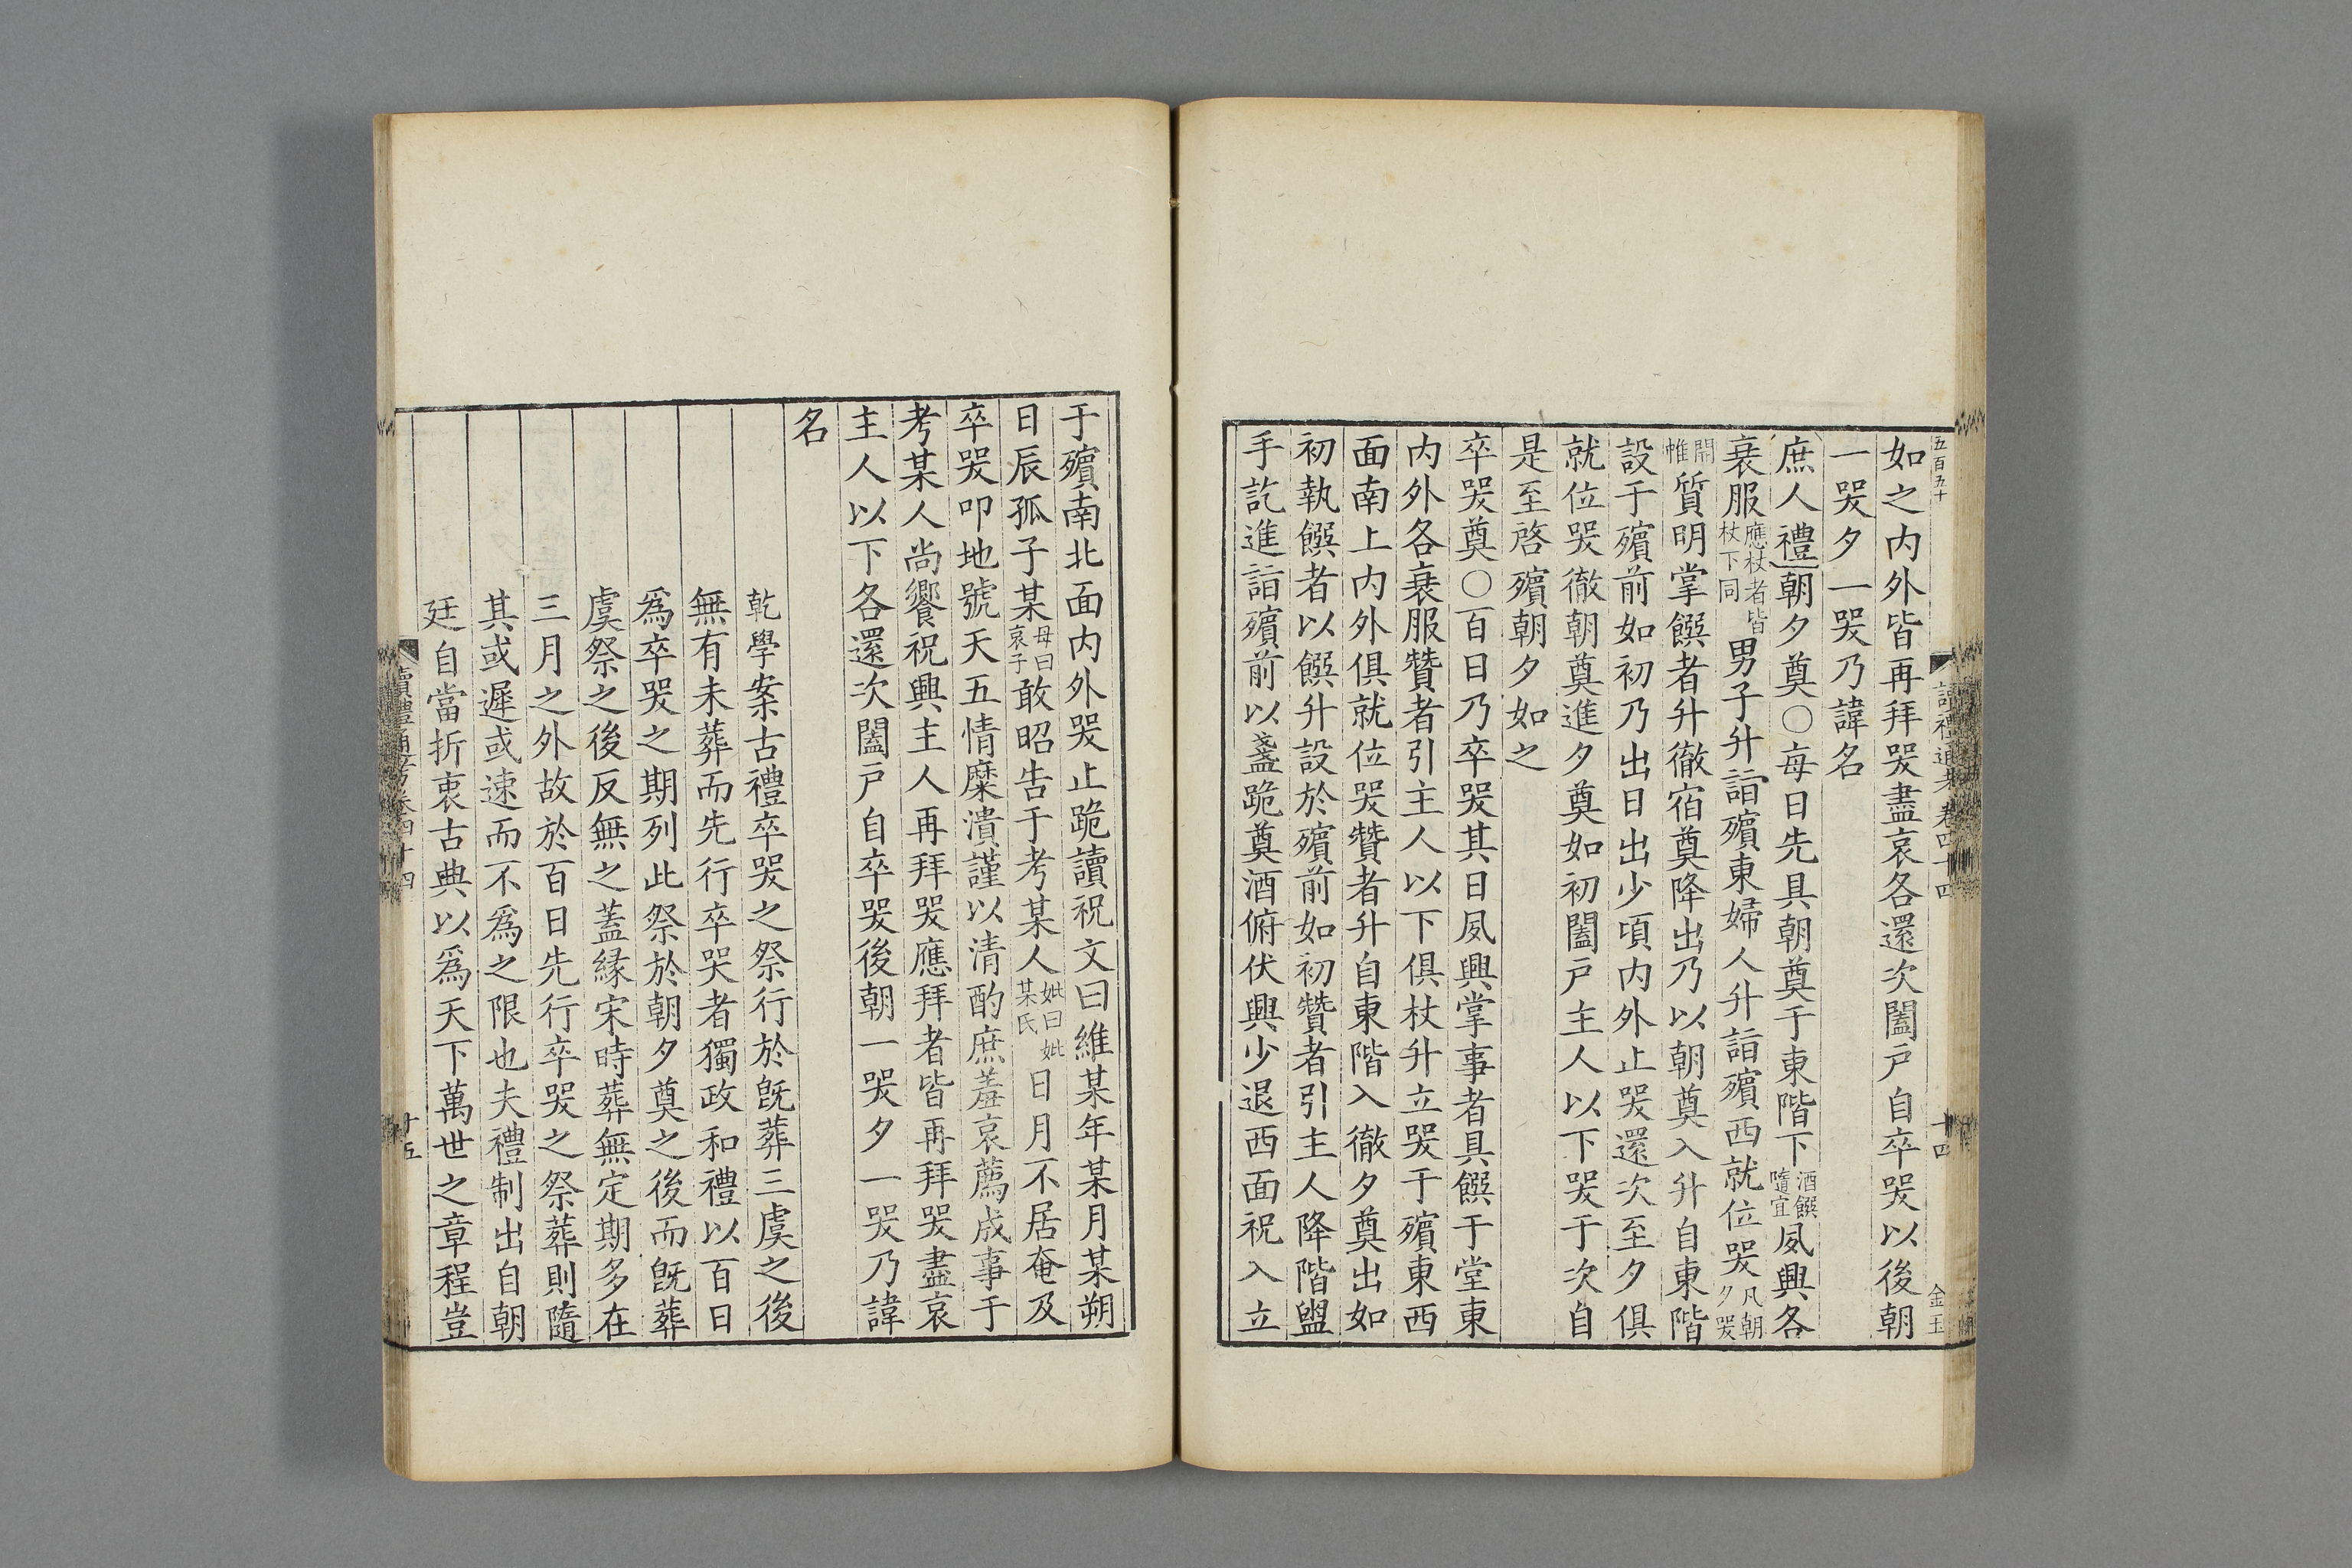 五百五十
讀禮通考卷四十四
十四
金玉
如之内外皆再拜哭盡哀各還次闔戸自卒哭以後朝
一哭夕一哭乃諱名
庶人禮朝夕奠○每日先具朝奠于東階下酒饌隨宜夙興各
衰服應杖者皆杖下同男子升詣殯東婦人升詣殯西就位哭凡朝夕哭
開帷質明掌饌者升徹宿奠降出乃以朝奠入升自東階
設于殯前如初乃出日出少頃内外止哭還次至夕俱
就位哭徹朝奠進夕奠如初闔戸主人以下哭于次自
是至啓殯朝夕如之
卒哭奠○百日乃卒哭其日夙興掌事者具饌于堂東
内外各衰服贊者引主人以下俱杖升立哭于殯東西
面南上内外俱就位哭贊者升自東階入徹夕奠出如
初執饌者以饌升設於殯前如初贊者引主人降階盥
手訖進詣殯前以盞跪奠酒俯伏興少退西面祝入立
于殯南北面内外哭止跪讀祝文曰維某年某月某朔
日辰孤子某母曰哀子敢昭告于考某人妣曰妣某氏日月不居奄及
卒哭叩地號天五情糜潰謹以清酌庶羞哀薦成事于
考某人尚饗祝興主人再拜哭應拜者皆再拜哭盡哀
主人以下各還次闔戸自卒哭後朝一哭夕一哭乃諱
名
乾學案古禮卒哭之祭行於旣葬三虞之後
無有未葬而先行卒哭者獨政和禮以百日
爲卒哭之期列此祭於朝夕奠之後而旣葬
虞祭之後反無之蓋緣宋時葬無定期多在
三月之外故於百日先行卒哭之祭葬則隨
其或遲或速而不爲之限也夫禮制出自朝
廷自當折衷古典以爲天下萬世之章程豈
讀禮通考卷四十四
十五